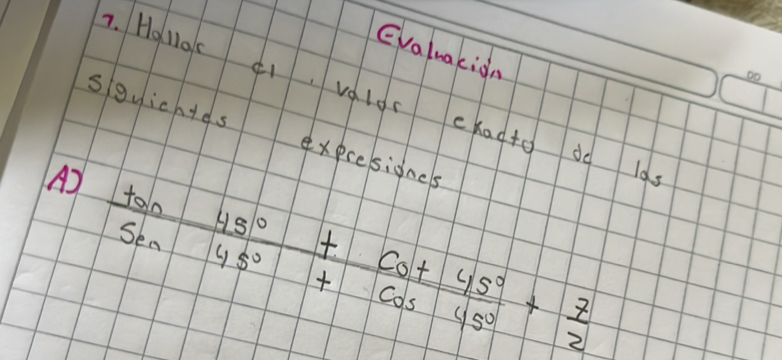 Evaluación
7. Hallar el valor exacto de las
siguientes expresiones
A) tan 45° + cot 45° + 7
sen 45° + cos 45° 2